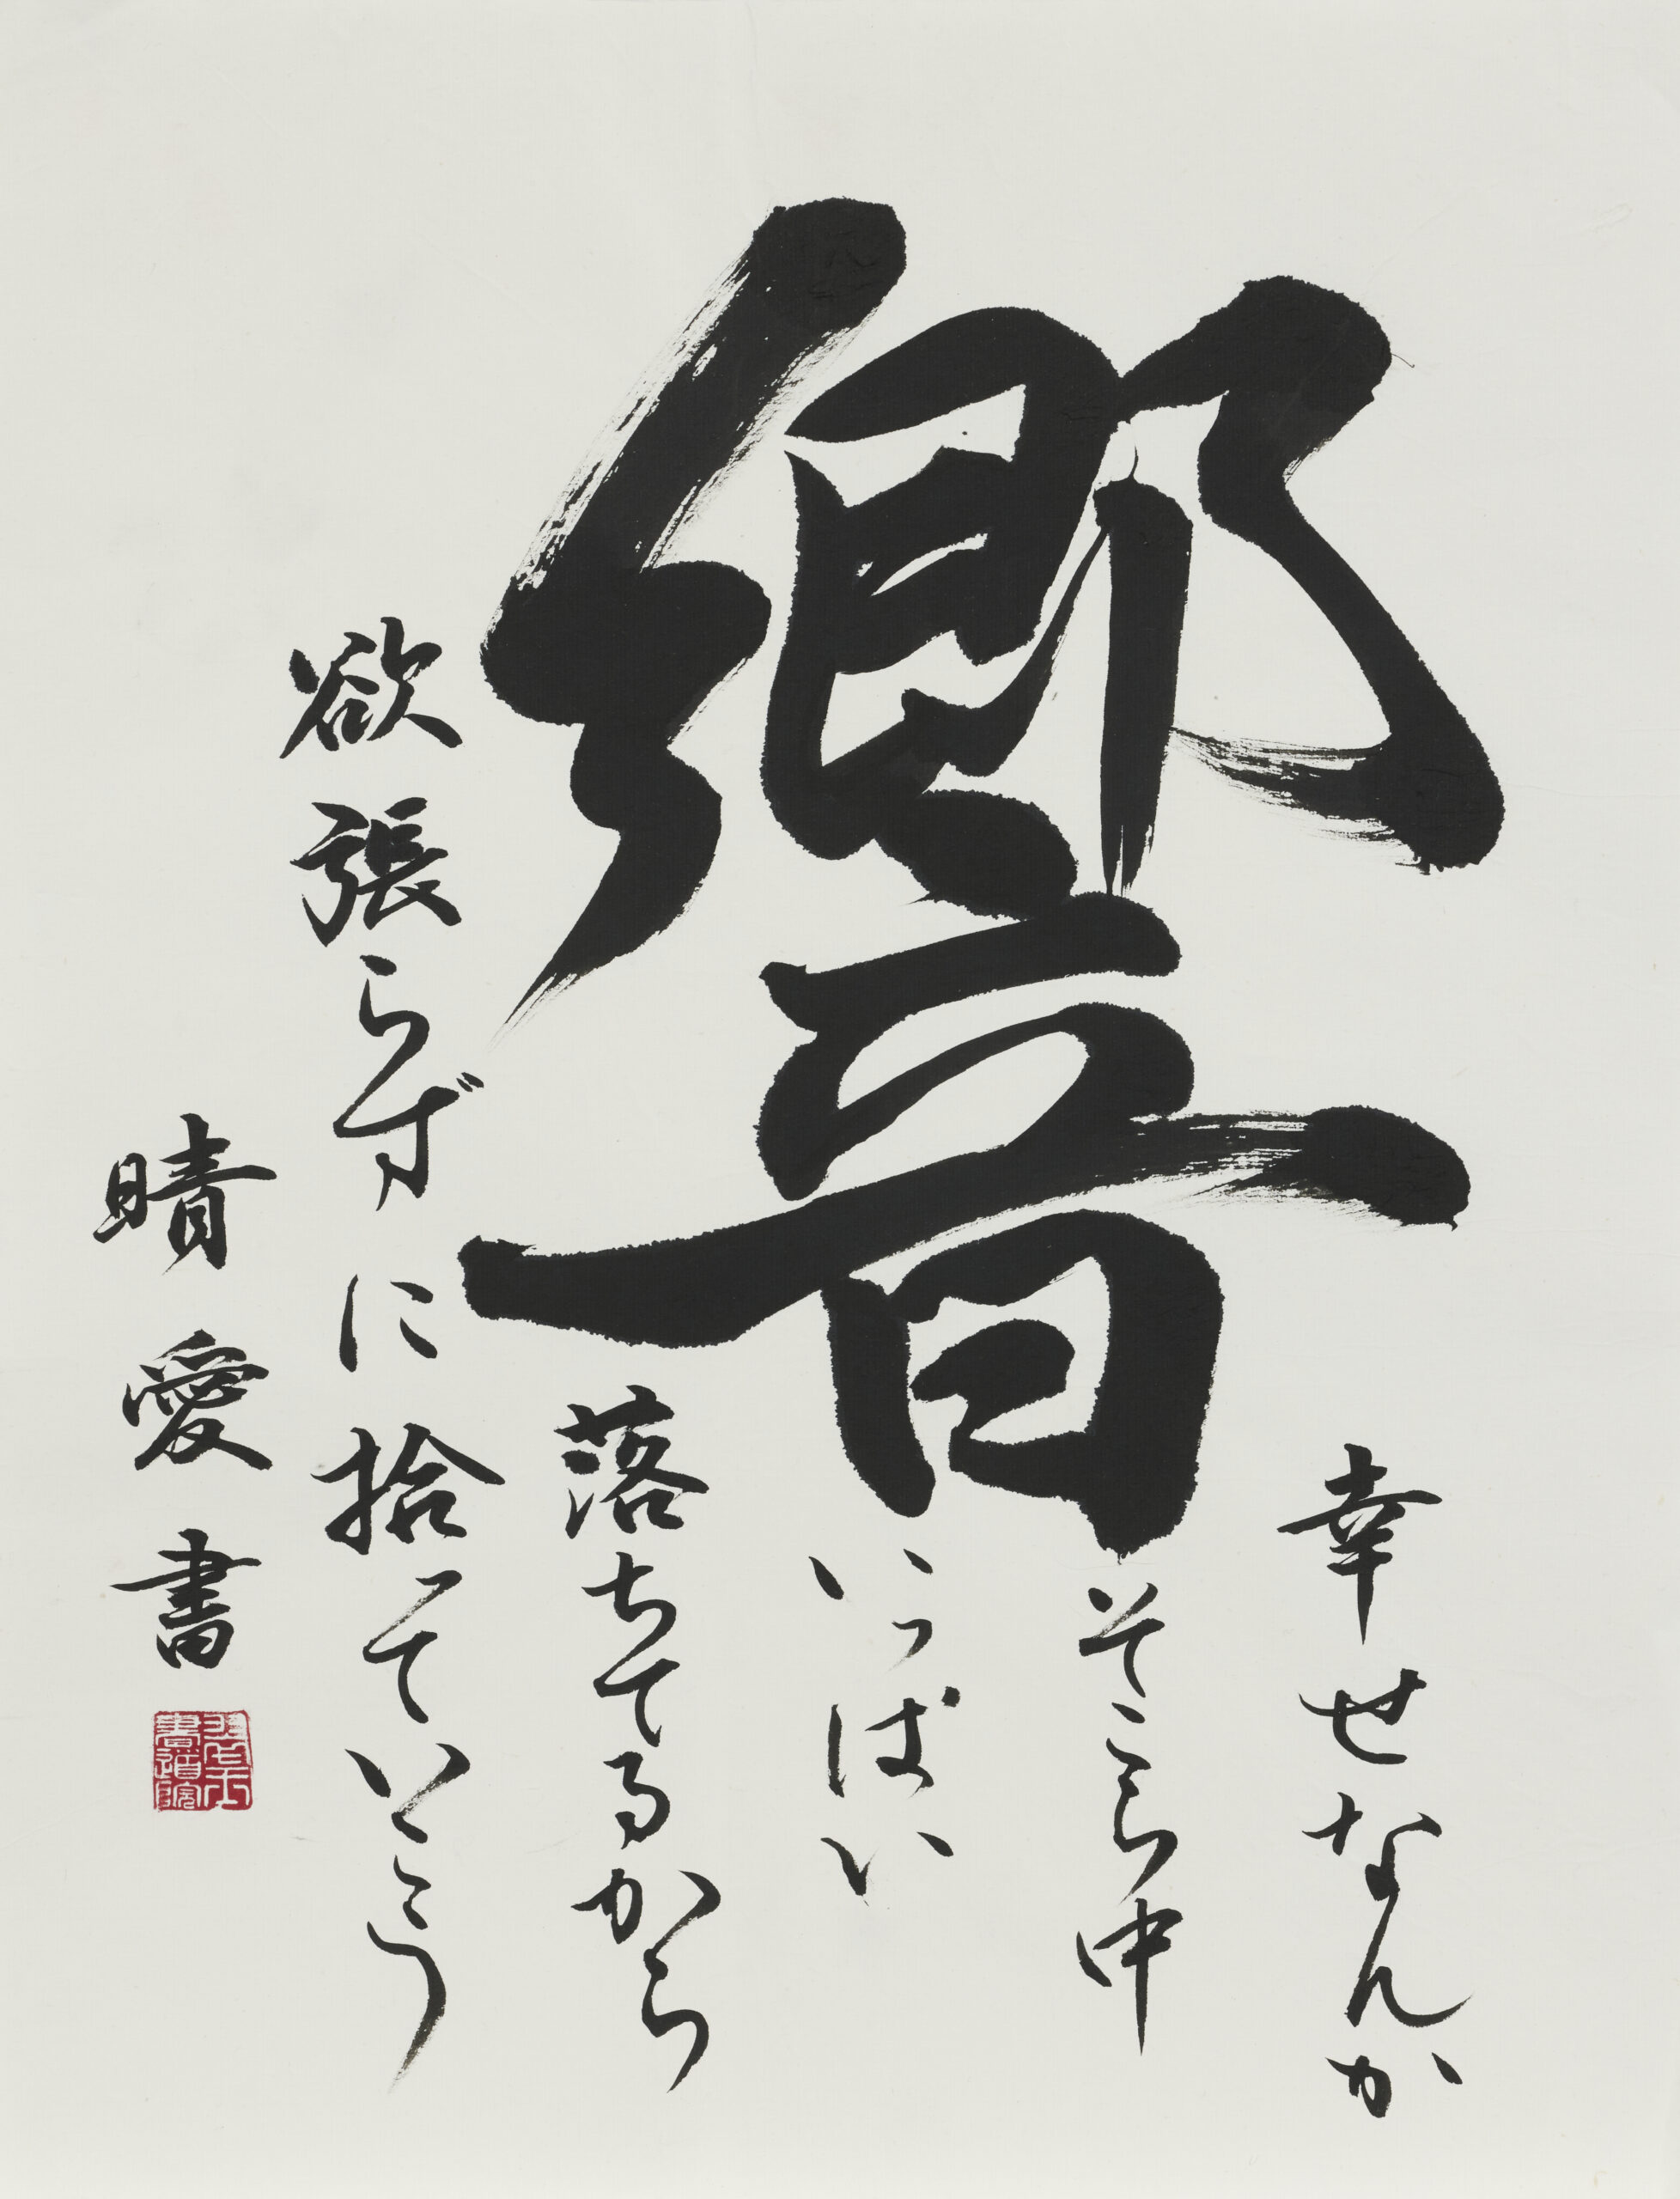 響
幸せなんか
そこら中
いっぱい
落ちてるから
欲張らずに拾っていこう
晴愛書